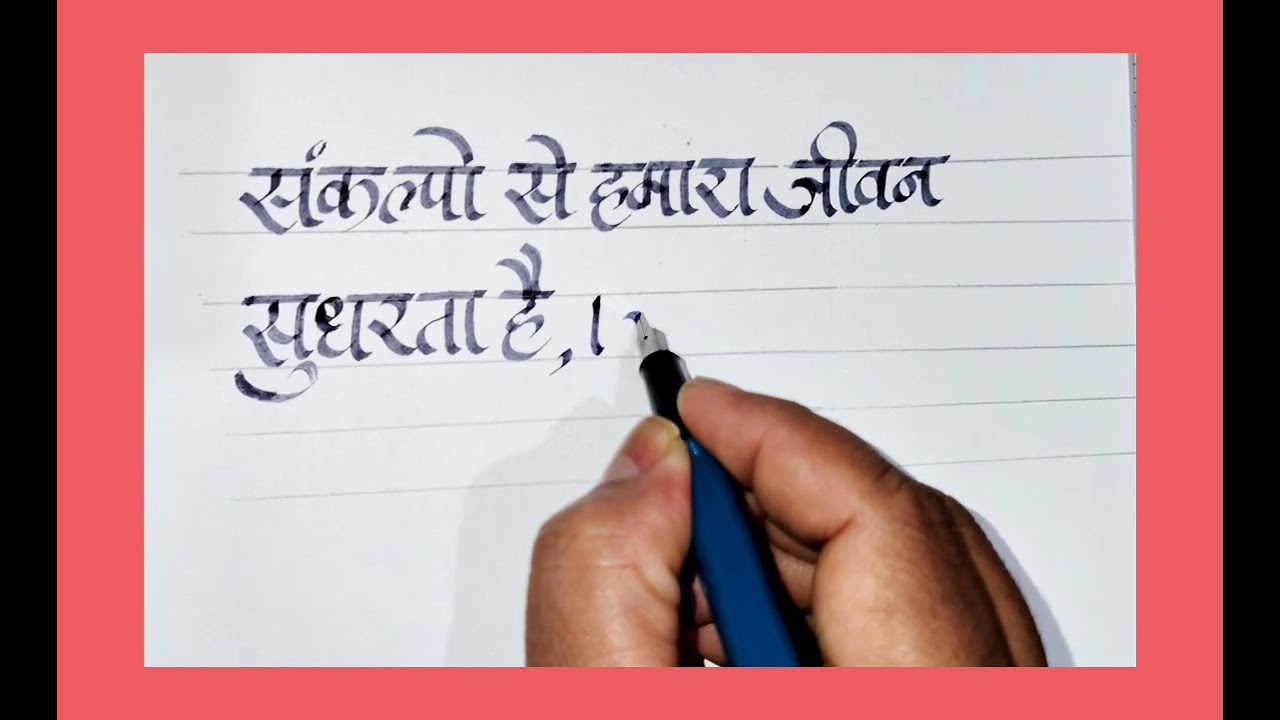 संकल्पो से हमारा जीवन
सुधरता है, ।